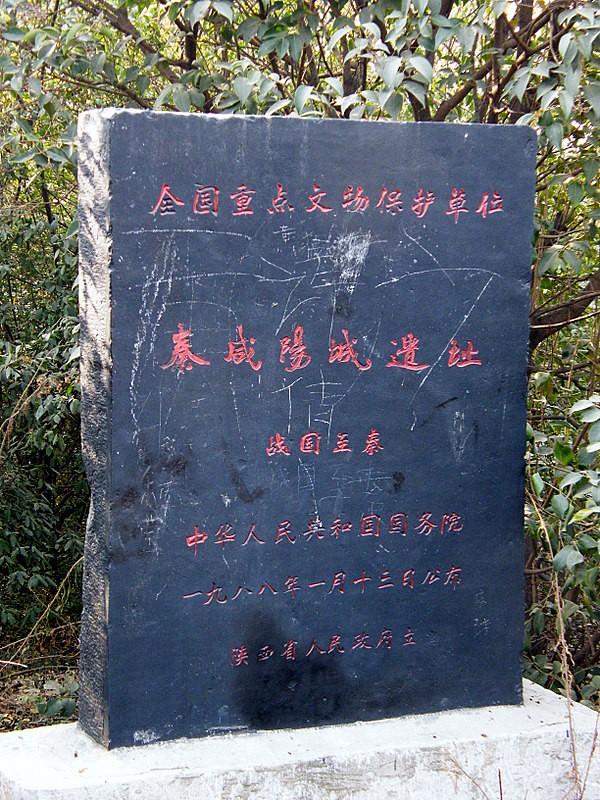 全国重点文物保护单位
秦咸陽城遺址
战国至秦
中华人民共和国国务院
一九八八年一月十三日公布
陕西省人民政府立